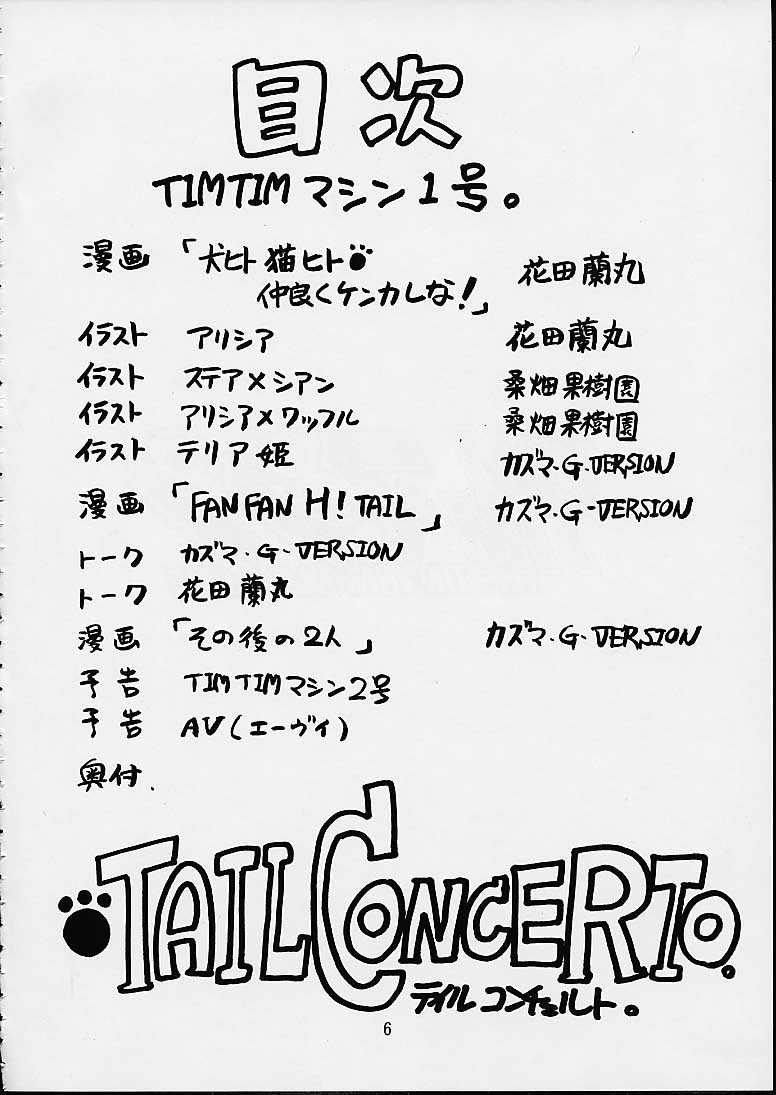 目次
TIMTIMマシン1号。
漫画 「犬ヒト猫ヒト
仲良くケンカしな!」 花田蘭丸
イラスト アリシア 花田蘭丸
イラスト ステア×シアン 桑畑果樹園
イラスト アリシア×ワッフル 桑畑果樹園
イラスト テリア姫 カズマ・G-VERSION
漫画 「FANFAN H! TAIL」 カズマ・G-VERSION
トーク カズマ・G-VERSION
トーク 花田蘭丸
漫画 「その後の2人」 カズマ・G-VERSION
予告 TIMTIMマシン2号
予告 AV(エーヴィ)
奥付.
TAIL CONCERTO.
テイルコンチェルト。
6